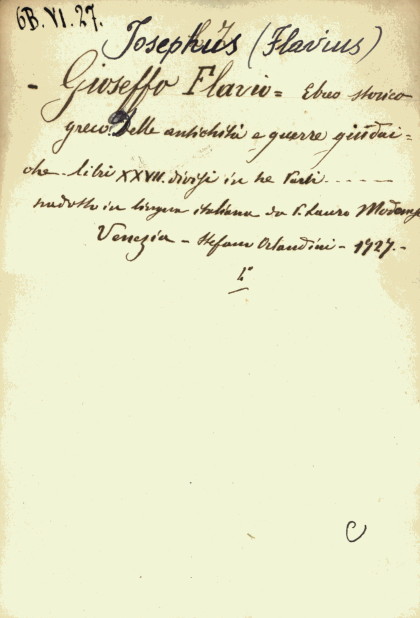 6B.VI.27.
Josephus (Flavius)
- Gioseffo Flavio = Ebreo storico
greco. Delle antichità e guerre giudai=
che - libri XXVII. divisi in tre Parti - - - - -
tradotto in lingua italiana da P. Lauro Modenese
Venezia - Stefano Orlandini - 1727. -
1.°
C